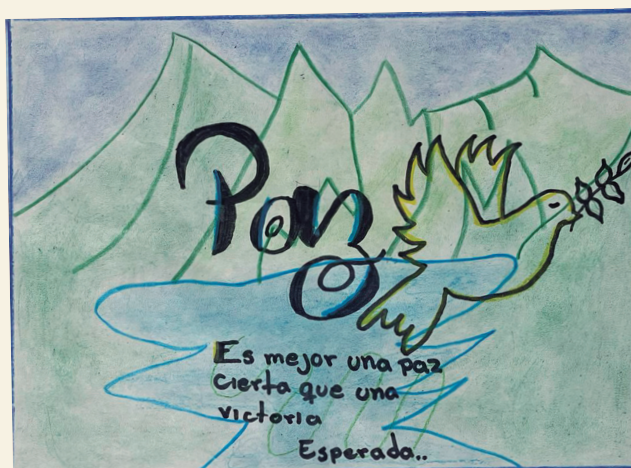 Paz
Es mejor una paz
cierta que una
victoria
Esperada..